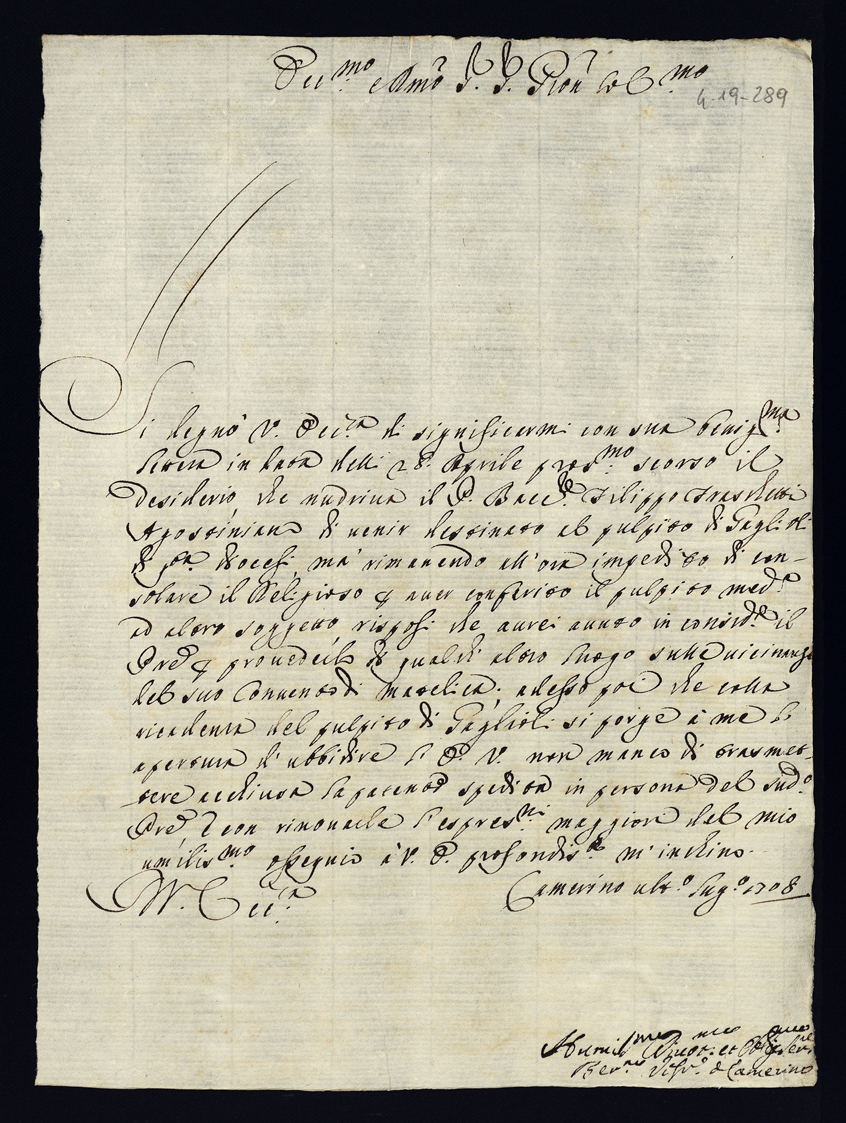 Ecc.mo e Rmo S. S. Pron Col.mo
4-19-289
Si degnò V. Ecc.za di significarmi con sua benig.ma
lettera in data delli 28 Aprile pros.mo scorso il
desiderio che nudriva il P. Bacc.re Filippo
Agostiniano di venir destinato al pulpito di Gaglioli
di q.ta diocesi, ma rimanendo all'ora impedito di con-
solare il Religioso p aver conferito il pulpito med.o
ad altro soggetto risposi che averei avuto in consid.ne il
Pre p provederlo di qualch altro luogo nelle vicinanze
del suo Convento di Matelica; adesso poi che colla
ricadenza del pulpito di Gaglioli si porge à me l'
apertura d'ubbidire l'E. V. non manco di trasmet-
tere acchiusa la patente spedita in persona del sud.o
Pre, e con rinovarle l'espres.ni maggiori del mio
umilis.mo ossequio à V. E. profondis.te m'inchino
Di V. Ecc.za
Camerino ult.o lug.o 1708
Humil.mo Divot. et Obligser.
Ber.no Vesc.o di Camerino